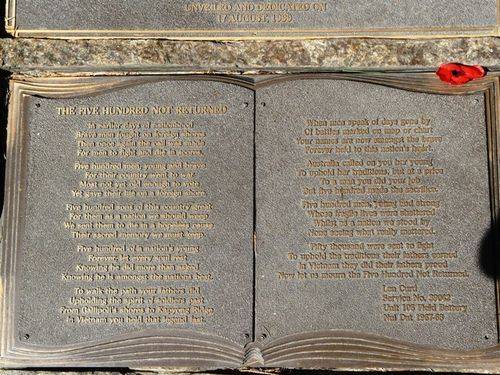 UNVEILED AND DEDICATED ON
17 AUGUST, 1999
THE FIVE HUNDRED NOT RETURNED
In earlier days of nationhood
Brave men fought on foreign shores
Then once again the call was made
For men to fight and die in scores.
Five hundred men, young and brave
For their country went to war
Most not yet old enough to vote
Yet gave their life on a foreign shore.
Five hundred sons of this country great
For them as a nation we should weep
We sent them to die in a hopeless cause
Their sacred memory we must keep.
Five hundred of a nation's young
Forever, let every soul rest
Knowing he did more than asked
Knowing he is amongst the nations best.
To walk the path your fathers did
Upholding the spirit of soldiers past
From Gallipoli's shores to Kapyong Ridge
In Vietnam you held that legend fast.
When men speak of days gone by
Of battles marked on map or chart
Your names are now amongst the brave
Forever held to this nation's heart.
Australia called on you her young
To uphold her traditions, but at a price
To a man you did your job
But five hundred made the sacrifice.
Five hundred men, young and strong
Whose fragile lives were shattered
Whilst as a nation we stood by
Not seeing what really mattered.
Fifty thousand were sent to fight
To uphold the traditions their fathers earned
In Vietnam they did their fathers proud
Now let us mourn the Five Hundred Not Returned.
Len Curd
Service No.
Unit 106 Field Battery
Nui Dat 1967-68